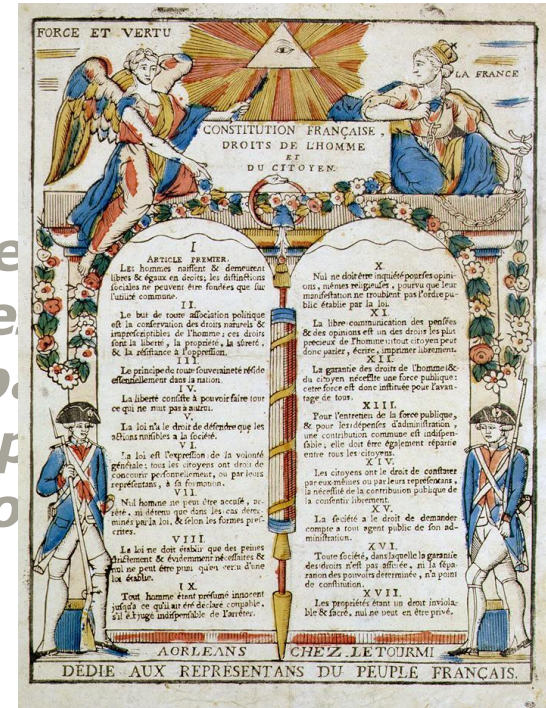 FORCE ET VERTU
LA FRANCE
CONSTITUTION FRANÇAISE,
DROITS DE L'HOMME
ET
DU CITOYEN.
I
ARTICLE PREMIER.
Les hommes naissent & demeurent
libres & égaux en droits; les distinctions
sociales ne peuvent être fondées que sur
l'utilité commune.
II.
Le but de toute association politique
est la conservation des droits naturels &
imprescriptibles de l'homme; ces droits
sont la liberté, la propriété, la sûreté,
& la résistance à l'oppression.
III.
Le principe de toute souveraineté réside
essentiellement dans la nation.
IV.
La liberté consiste à pouvoir faire tout
ce qui ne nuit pas à autrui.
V.
La loi n'a le droit de défendre que les
actions nuisibles a la société.
VI.
La loi est l'expression de la volonté
générale; tous les citoyens ont droit de
concourir personnellement, ou par leurs
représentans, à sa formation.
VII.
Nul homme ne peut être accusé, ar-
rêté, ni détenu que dans les cas déter-
minés par la loi, & selon les formes pres-
crites.
VIII.
La loi ne doit établir que des peines
strictement & évidemment nécessaires &
nul ne peut être puni qu'en vertu d'une
loi établie.
IX.
Tout homme étant présumé innocent
jusqu'a ce qu'il ait été déclaré coupable,
s'il est jugé indispensable de l'arrêter.
X.
Nul ne doit être inquiété pour ses opini-
ons, mêmes religieuses, pourvu que leur
manifestation ne troublent pas l'ordre pu-
blic établie par la loi.
XI.
La libre communication des pensées
& des opinions est un des droits les plus
precieux de l'homme: tout citoyen peut
donc parler, écrire, imprimer librement.
XII.
La garantie des droits de l'homme &
du citoyen nécessite une force publique:
cette force est donc instituée pour l'avan-
tage de tous.
XIII.
Pour l'entretien de la force publique,
& pour les dépenses d'administration,
une contribution commune est indispen-
sable; elle doit être également répartie
entre tous les citoyens.
XIV.
Les citoyens ont le droit de constater
par eux-mêmes ou par leurs représentans,
la nécessité de la contribution publique de
la consentir librement.
XV.
La société a le droit de demander
compte a tout agent public de son ad-
ministration.
XVI.
Toute société, dans laquelle la garantie
des droits n'est pas assurée, ni la sépa-
ration des pouvoirs determinée, n'a point
de constitution.
XVII.
Les propriétés étant un droit inviola-
ble & sacré, nul ne peut en être privé.
A ORLEANS CHEZ LETOURMI
DÉDIÉ AUX REPRÉSENTANS DU PEUPLE FRANÇAIS.